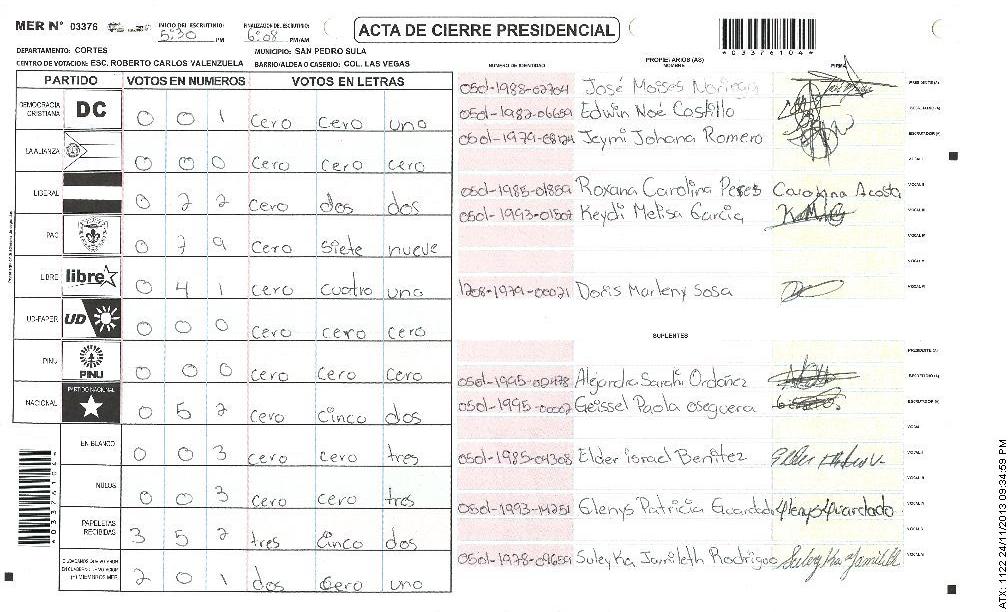 MER Nº 03376
INICIO DEL ESCRUTINIO:
5:30 PM
FINALIZACION DEL ESCRUTINIO:
6:08 PM/AM
ACTA DE CIERRE PRESIDENCIAL
*03376104*
DEPARTAMENTO: CORTES
MUNICIPIO: SAN PEDRO SULA
CENTRO DE VOTACION: ESC. ROBERTO CARLOS VALENZUELA
BARRIO/ALDEA O CASERIO: COL. LAS VEGAS
PARTIDO VOTOS EN NUMEROS VOTOS EN LETRAS
DEMOCRACIA CRISTIANA DC 0 0 1 cero cero uno
LA ALIANZA 0 0 0 cero cero cero
LIBERAL 0 2 2 cero dos dos
PAC 0 7 9 cero siete nueve
LIBRE libre 0 4 1 cero cuatro uno
UD-FAPER UD 0 0 0 cero cero cero
PINU PINU 0 0 0 cero cero cero
NACIONAL PARTIDO NACIONAL 0 5 2 cero cinco dos
EN BLANCO 0 0 3 cero cero tres
NULOS 0 0 3 cero cero tres
PAPELETAS RECIBIDAS 3 5 2 tres cinco dos
(+) MIEMBROS MER 2 0 1 dos cero uno
NUMERO DE IDENTIDAD
PROPIETARIOS (AS)
NOMBRE
FIRMA
0501-1988-02704 José Moises
PRESIDENTE (A)
0501-1982-06659 Edwin Noé Castillo
SECRETARIO (A)
0501-1979-08124 Jeymi Johana Romero
ESCRUTADOR (A)
VOCAL I
0501-1985-01859 Roxana Carolina Peres Carolina Acosta
VOCAL II
0501-1993-01807 Keydi Melisa Garcia
VOCAL III
VOCAL IV
VOCAL V
1208-1979-00021 Doris Marleny Sosa
VOCAL VI
SUPLENTES
PRESIDENTE (A)
Alejandra Sarahi Ordoñez
SECRETARIO (A)
0501-1995-00007 Geissel Paola oseguera
ESCRUTADOR (A)
VOCAL I
0501-1985-04308 Elder israel Benitez
VOCAL II
VOCAL III
0501-1993-14251 Glenys Patricia Guardado Glenys Guardado
VOCAL IV
VOCAL V
0501-1978-09659 Suleyka Jamileth Rodriguez Suleyka Jamileth
VOCAL VI
*03376104*
ATX: 1122 24/11/2013 09:34:59 PM